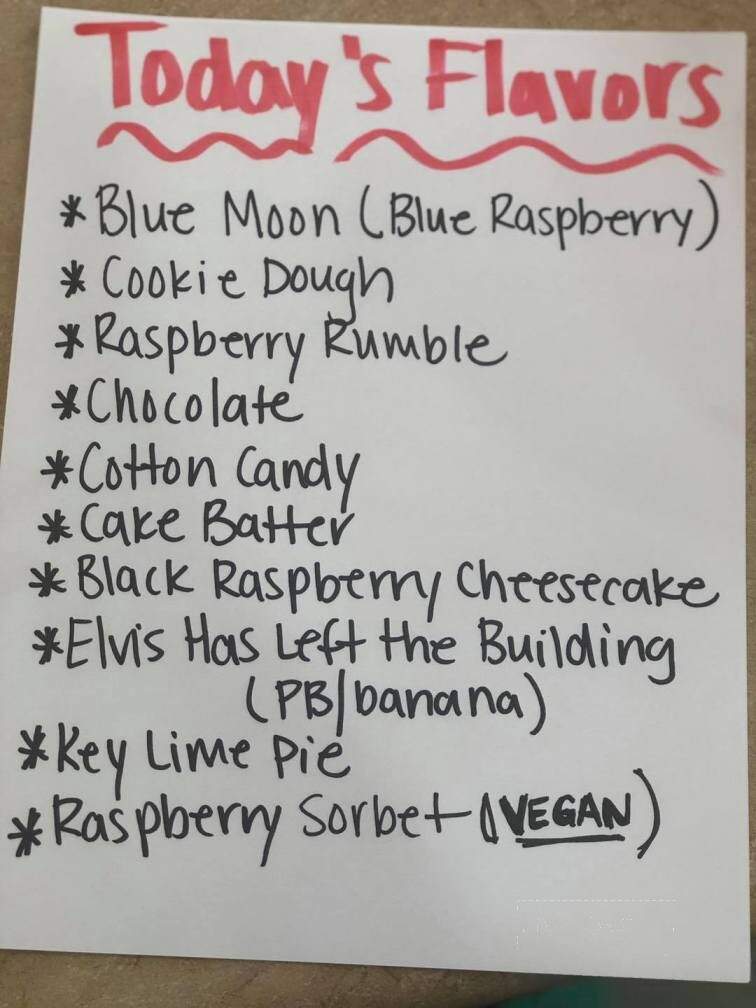 Today's Flavors
* Blue Moon (Blue Raspberry)
* Cookie Dough
* Raspberry Rumble
* Chocolate
* Cotton Candy
* Cake Batter
* Black Raspberry Cheesecake
* Elvis Has Left the Building
(PB/banana)
* Key Lime Pie
* Raspberry Sorbet (VEGAN)